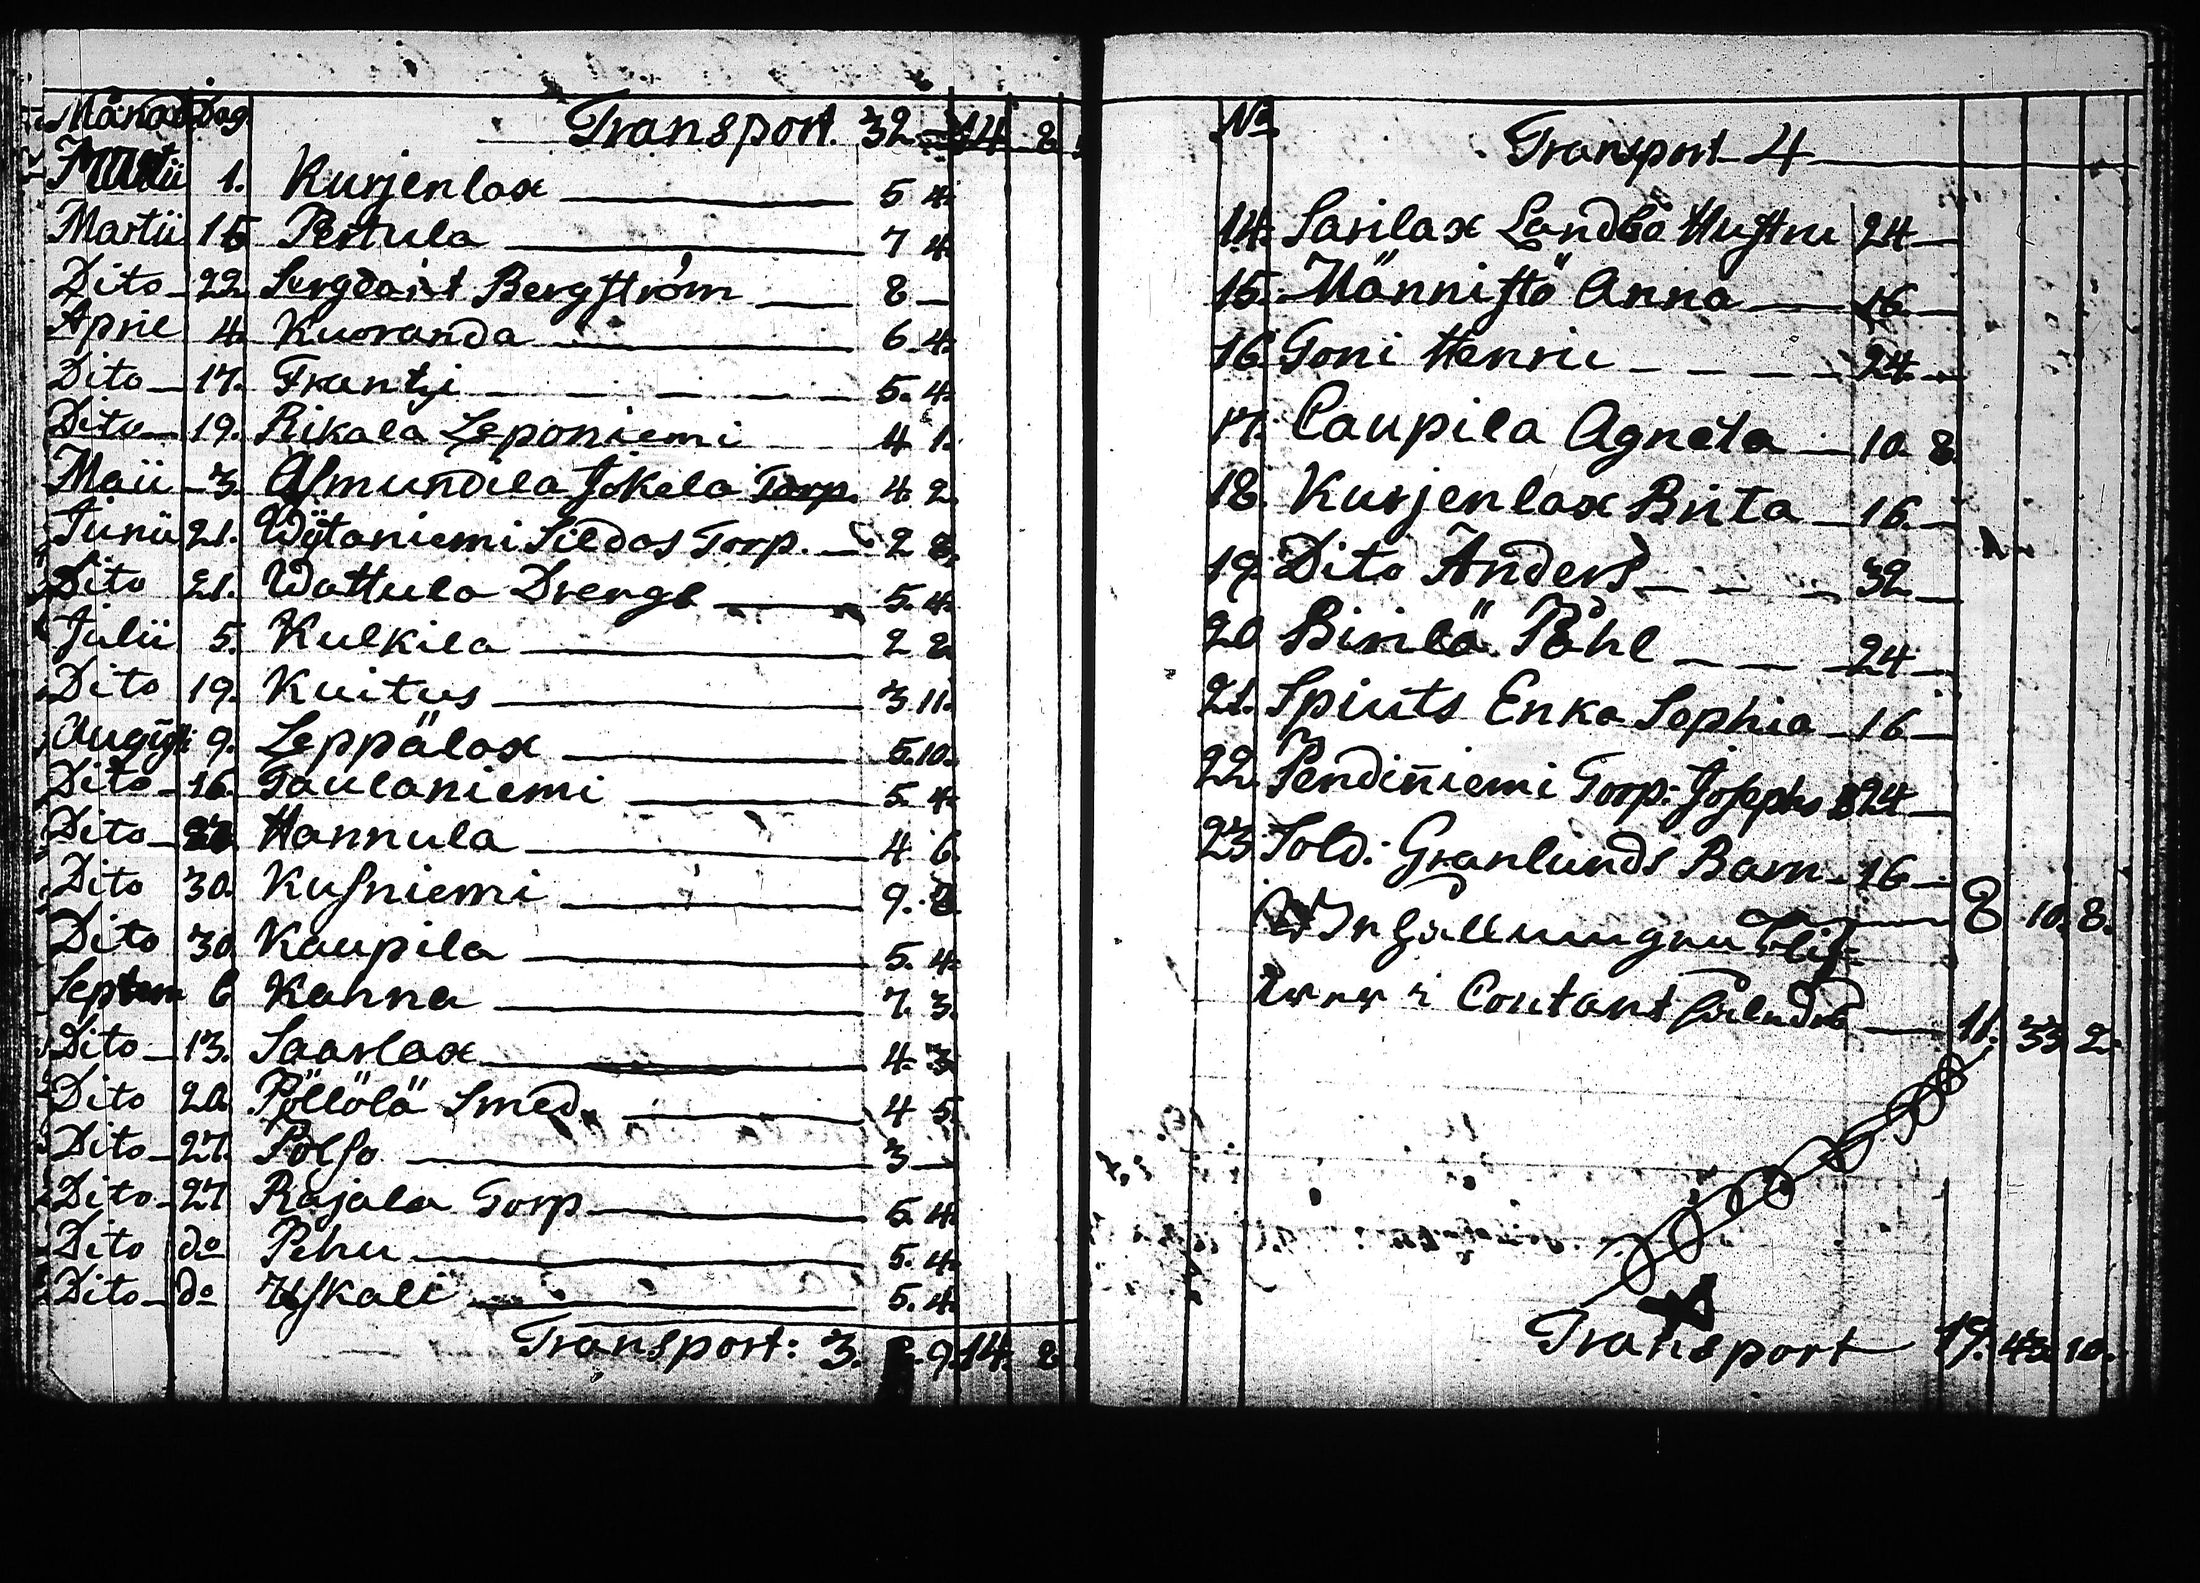 Månad Dag Transport. 32 14 8
Martii 1. Kurjenlax 5 4.
Martii 15 Pertula 7 4.
Dito 22. Sergeant Bergström 8
April 4. Kuoranda 6 4.
Dito 17. Frantzi 5. 4.
Dito 19. Rikala Leponiemi 4 1.
Maii 3. Asmundila Jokela Torp. 4 2.
Junii 21. Wijtaniemi Sildas Torp. 2 8.
Dito 21. Wattula Drengb 5. 4.
Julii 5. Kulkila 2 2
Dito 19. Kuitus 3 11.
Augusti 9. Leppälax 5. 10.
Dito 16. Taulaniemi 5. 4.
Dito Hannula 4 6.
Dito 30. Kusniemi 9. 8
Dito 30 Kaupila 5. 4.
Septem 6 Kanna 7. 3.
Dito 13. Saarlax 4. 3
Dito 20. Pöllölä Smed. 4 5.
Dito 27. Polso 3
Dito 27 Rajala Torp 5. 4.
Dito do Pehu 5. 4.
Dito do Uskali 5. 4.
Transport: 3. 9. 14. 8
No. Transport 4
14. Sarilax Landbo Hustru 24
15. Männistö Anna 16.
16 Toni Henric 24.
17. Caupila Agneta 10. 8.
18. Kurjenlax Brita 16.
19. Dito Anders 32
20 Birilä Påhl 24
21. Spiuts Enka Sophia 16
22. Pendiñiemi Torp: Josephs B 24
23 Sold: Granlunds Barn 16
8 10. 8.
i Contant 11. 33 2.
Transport 19. 43 10.